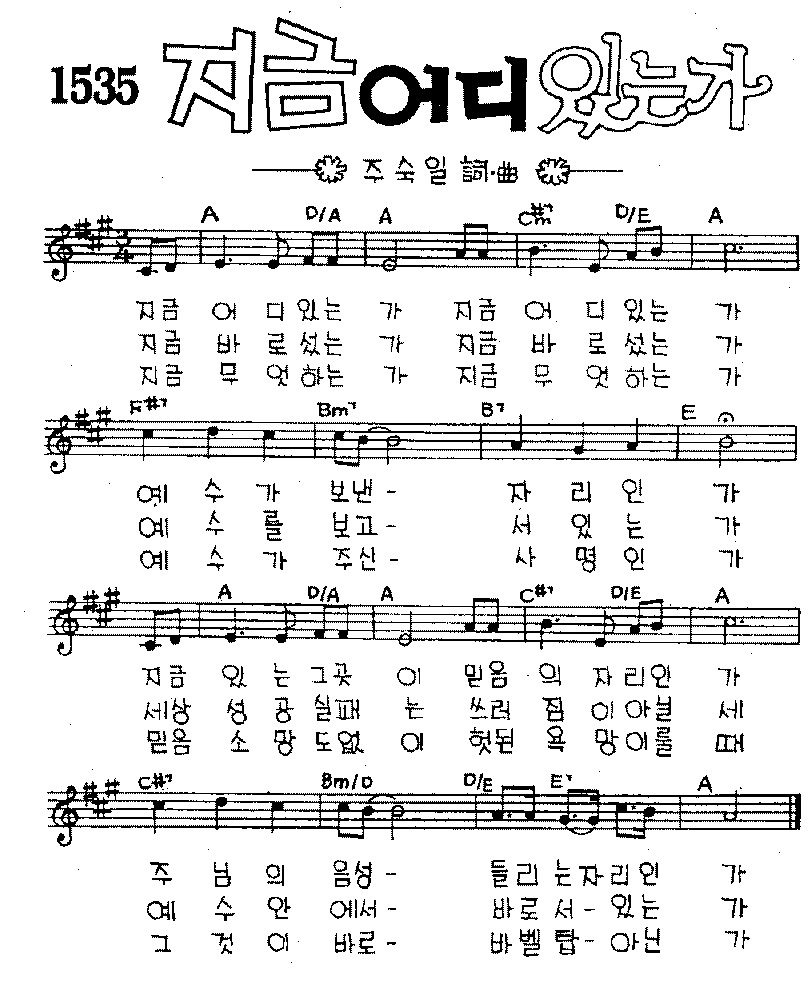 1535 지금 어디 있는가
주숙일 詞·曲
A D/A A C#m7 D/E A
3/4
지금 어 디있는 가 지금 어 디 있는 가
지금 바 로섰는 가 지금 바 로 섰는 가
지금 무 엇하는 가 지금 무 엇 하는 가
F#7 Bm7 B7 E
예 수 가 보낸- 자 리 인 가
예 수 를 보고- 서 있 는 가
예 수 가 주신- 사 명 인 가
A D/A A C#7 D/E A
지금 있 는그곳 이 믿음 의 자리인 가
세상 성 공실패 는 쓰러 짐 이아닐 세
믿음 소 망도없 이 헛된 욕 망이룰 때
C#7 Bm/D D/E E7 A
주 님 의 음성- 들리 는자리인 가
예 수 안 에서- 바로서- 있는 가
그 것 이 바로- 바벨탑- 아닌 가